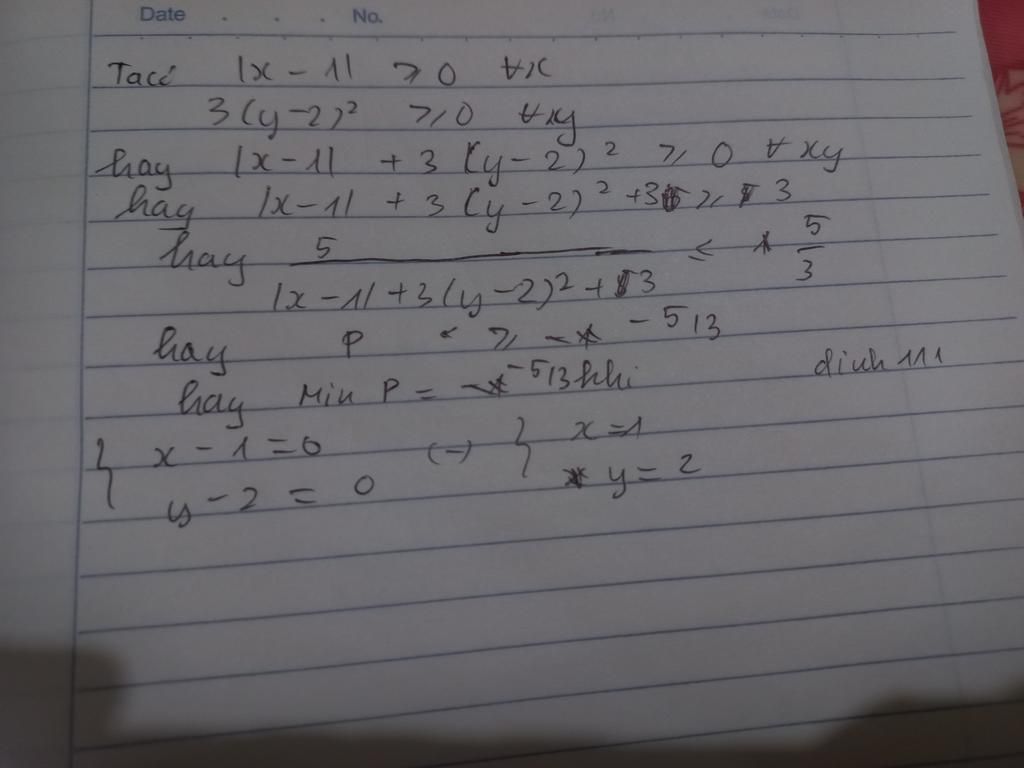 Date . . . No.
Ta có |x - 1| ≥ 0 ∀x
3(y-2)² ≥ 0 ∀xy
hay |x-1| + 3(y-2)² ≥ 0 ∀xy
hay |x-1| + 3(y-2)² +3 ≥ 3
hay 5/(|x-1|+3(y-2)²+3) ≤ 5/3
hay P ≥ -5/3
hay Min P = -5/3 khi
x - 1 = 0 (-) x = 1
y - 2 = 0 y = 2